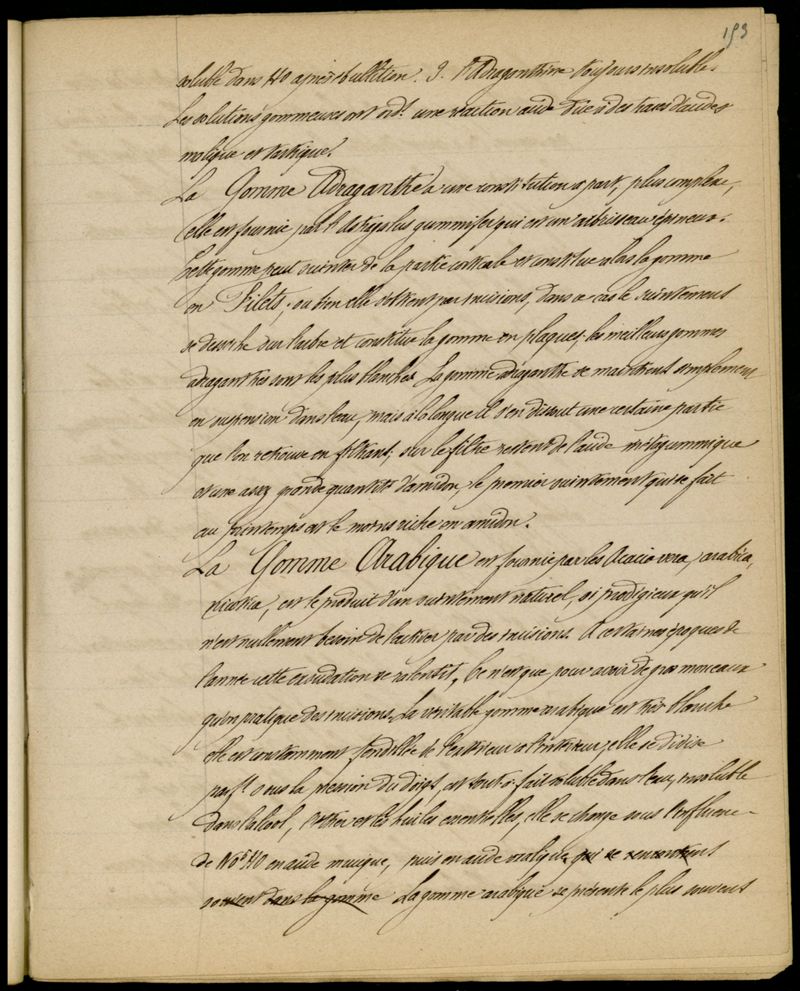 193
soluble dans HO après ébullition. 3. l'Adraganthine toujours insoluble.
Les solutions gommeuses ont ord.t une réaction acide due à des traces d'acides
malique et tartrique.
La Gomme Adraganthe a une constitution à part, plus complexe,
elle est fournie par l'Astragalus gummifer qui est un arbrisseau épineux.
Cette gomme peut suinter de la partie corticale et constitue alors la gomme
en Filets, ou bien elle s'obtient par incisions, dans ce cas le suintement
se dessèche sur l'arbre et constitue la gomme en plaques, les meilleures gommes
adraganthes sont les plus blanches. La gomme adraganthe se maintient simplement
en suspension dans l'eau, mais à la longue il s'en dissout une certaine partie
que l'on retrouve en filtrant, sur le filtre restent de l'acide métagummique
et une assez grande quantité d'amidon, le premier suintement qui se fait
au printemps est le moins riche en amidon.
La Gomme Arabique est fournie par les Acacia vera, arabica,
, est le produit d'un suintement naturel, si prodigieux qu'il
n'est nullement besoin de l'activer par des incisions. A certaines époques de
l'année cette exsudation se ralentit, Ce n'est que pour avoir de gros morceaux
qu'on pratique des incisions. La véritable gomme arabique est très blanche
elle est constamment fendillée de l'extérieur à l'intérieur, elle se divise
parf.t sous la pression du doigt, est tout à fait soluble dans l'eau, insoluble
dans l'alcool, l'éther et les huiles essentielles, elle se change sous l'influence
de HO en acide mucique, puis en acide oxalique qui se rencontrent
souvent dans la gomme La gomme arabique se présente le plus souvent